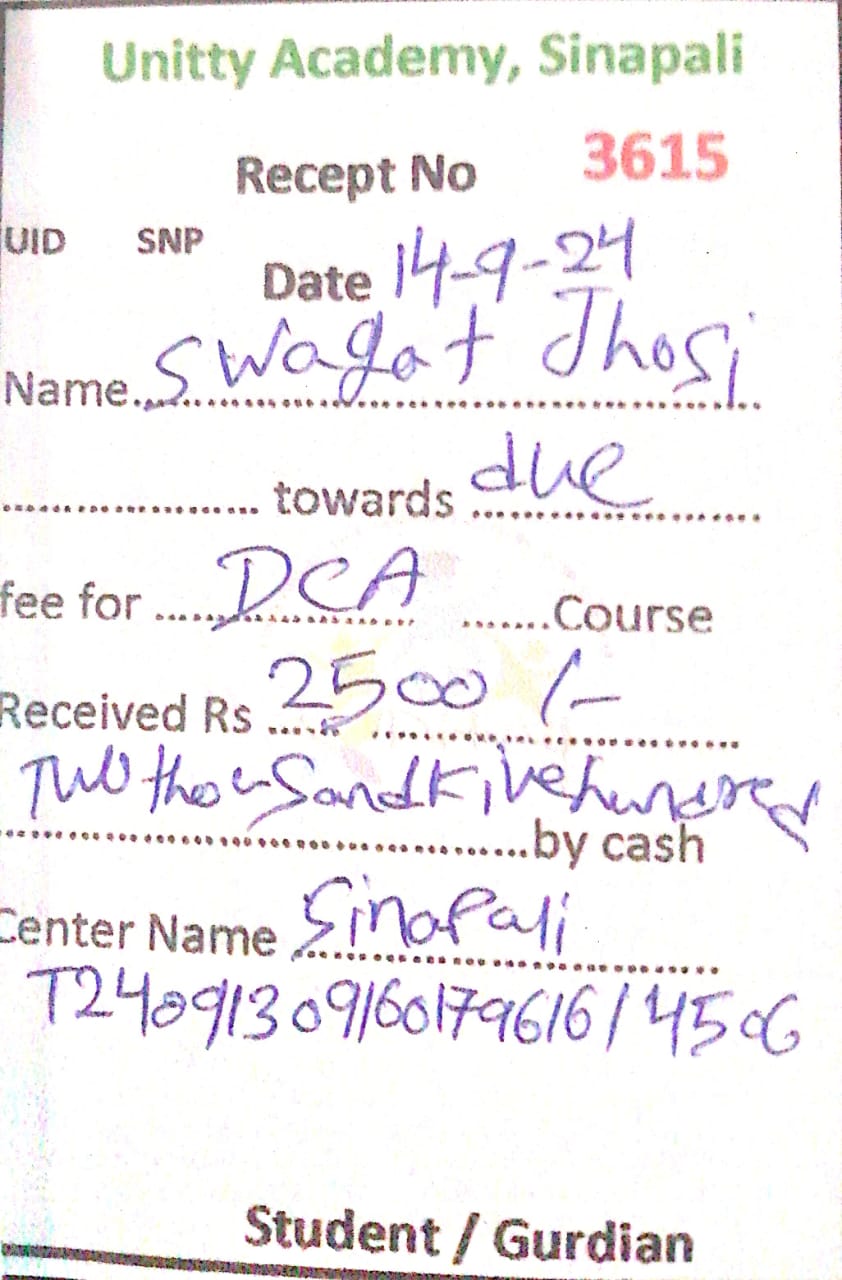 Unitty Academy, Sinapali
Recept No 3615
UID SNP
Date 14-9-24
Name Swagat Jhosi
towards due
fee for DCA Course
Received Rs 2500 /-
Two thousand Five hundred
by cash
Center Name Sinapali
T24091309160179616/4506
Student / Gurdian